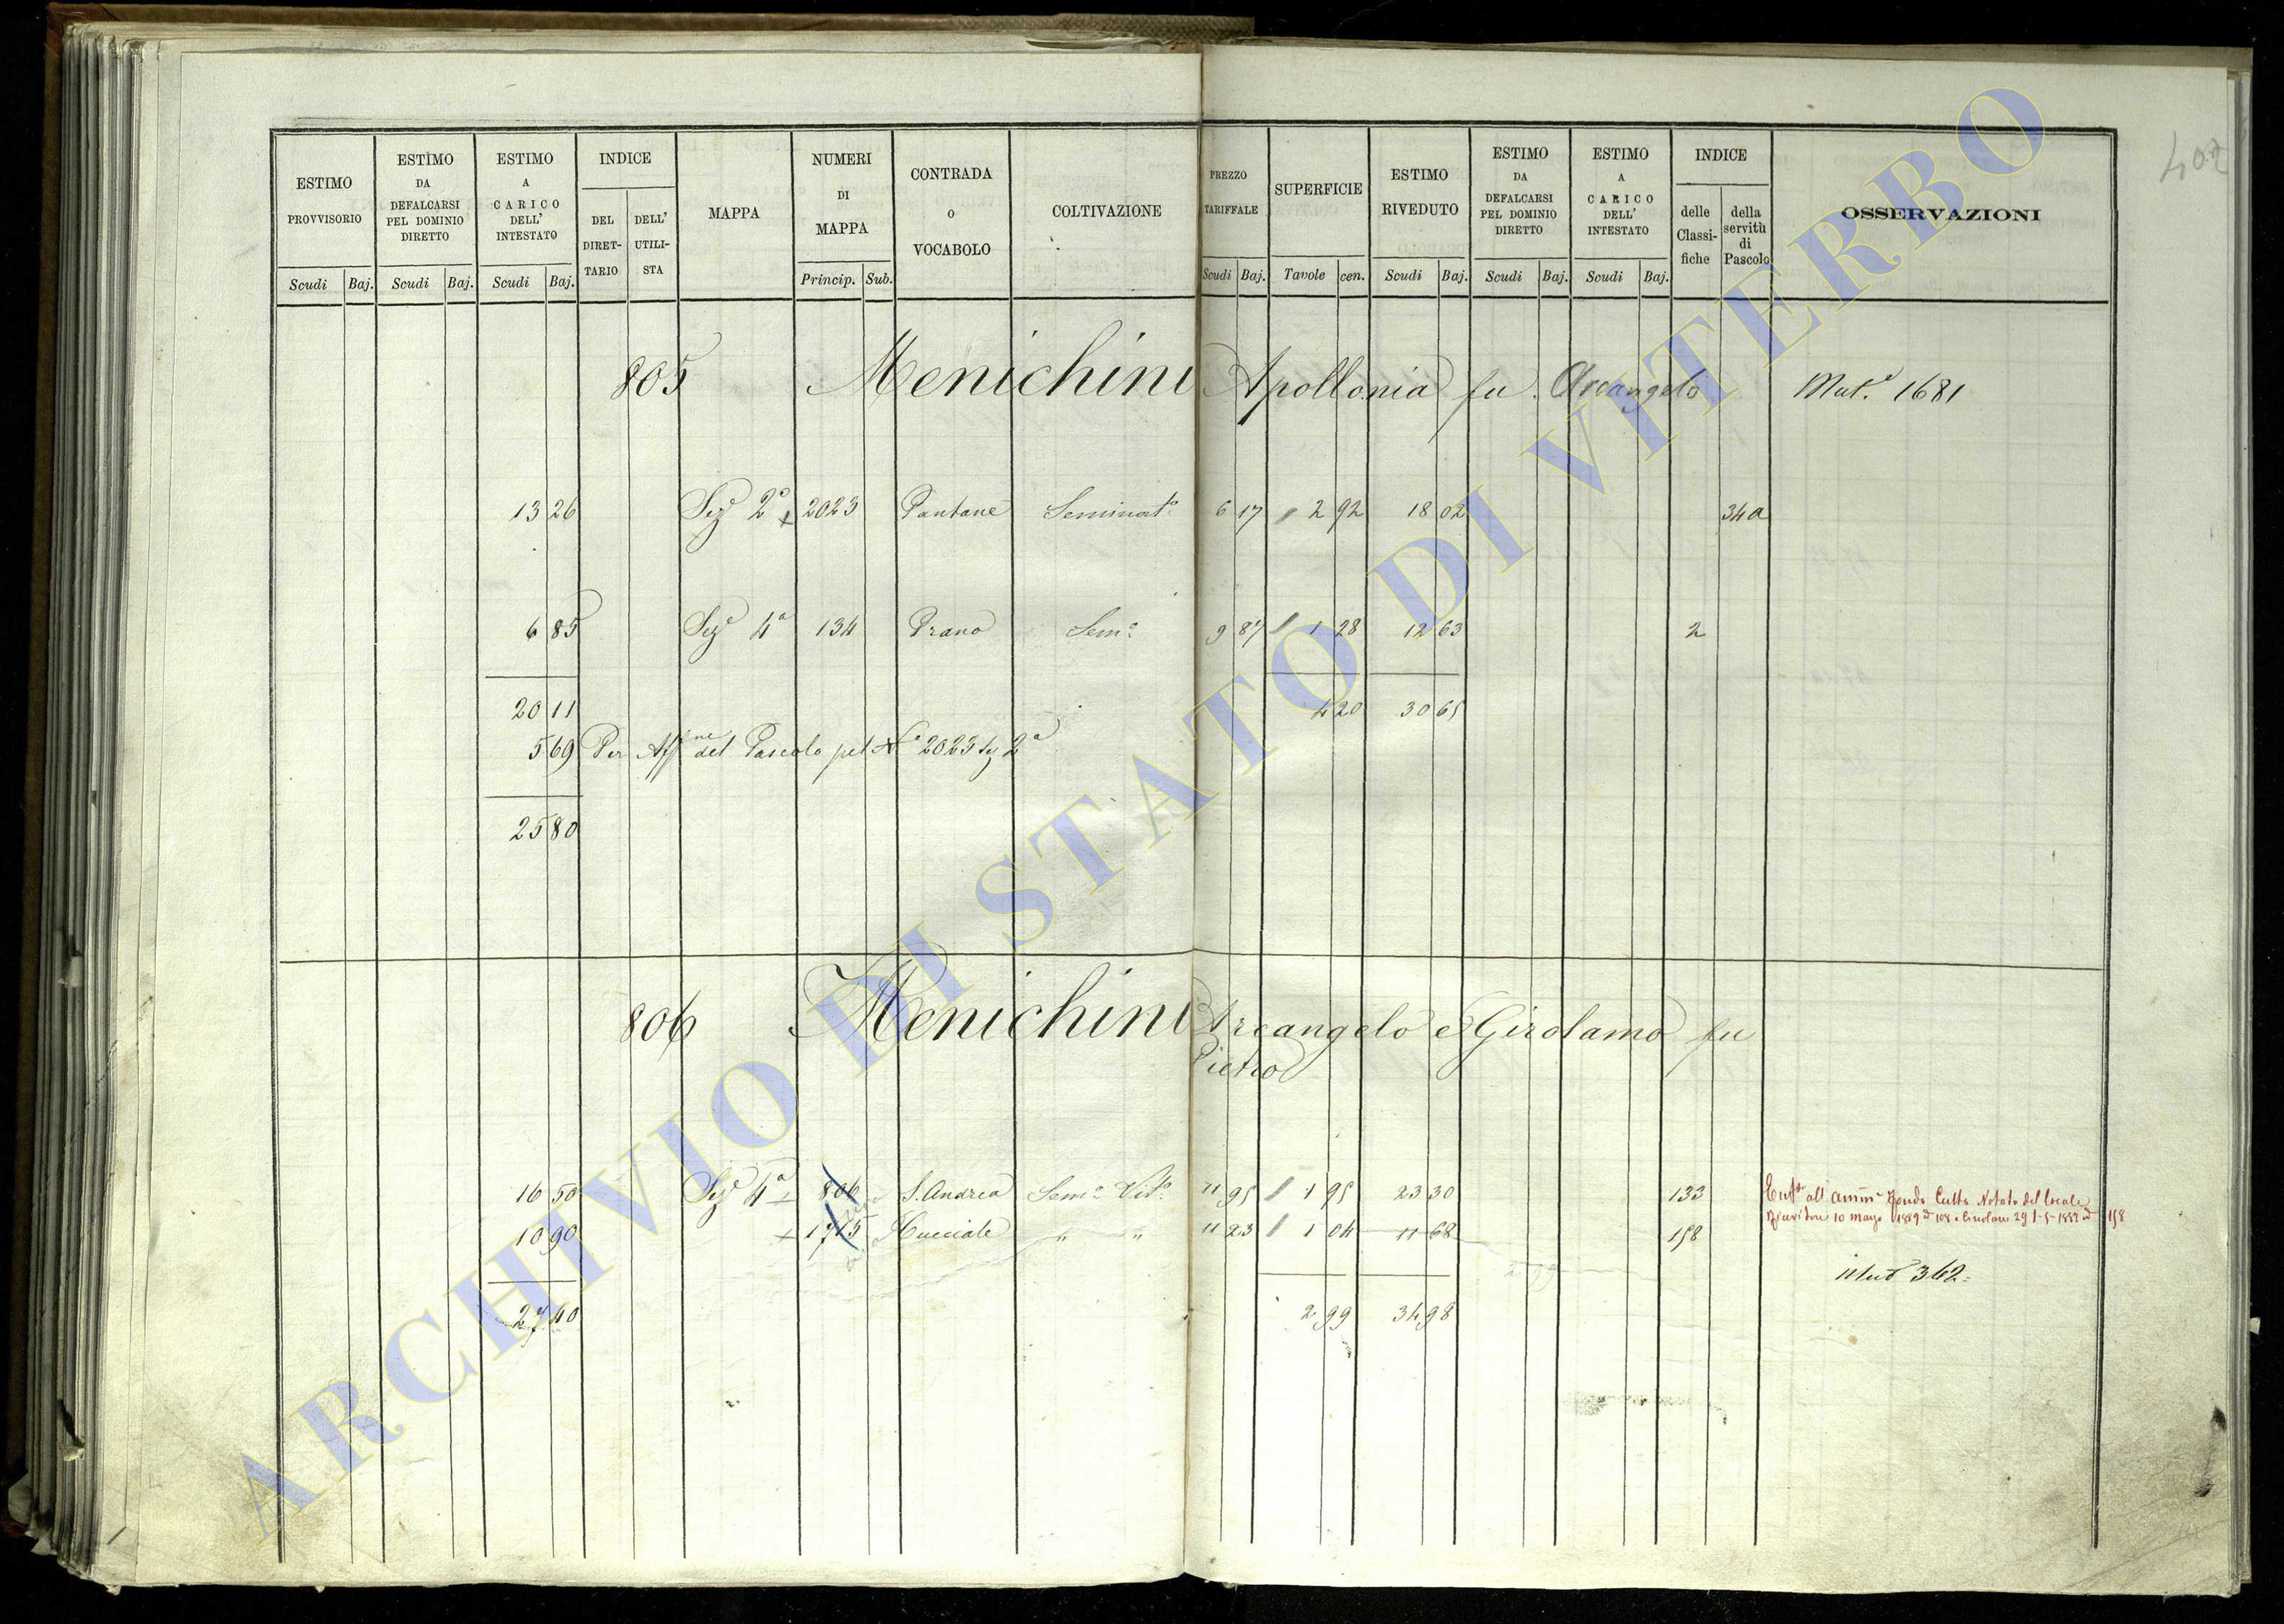 402
ESTIMO PROVVISORIO Scudi Baj.
ESTIMO DA DEFALCARSI PEL DOMINIO DIRETTO Scudi Baj.
ESTIMO A CARICO DELL' INTESTATO Scudi Baj.
INDICE DEL DIRET-TARIO DELL' UTILI-STA
MAPPA
NUMERI DI MAPPA Princip. Sub.
CONTRADA O VOCABOLO
COLTIVAZIONE
PREZZO TARIFFALE Scudi Baj.
SUPERFICIE Tavole cen.
ESTIMO RIVEDUTO Scudi Baj.
ESTIMO DA DEFALCARSI PEL DOMINIO DIRETTO Scudi Baj.
ESTIMO A CARICO DELL' INTESTATO Scudi Baj.
INDICE delle Classi-fiche della servitù di Pascolo
OSSERVAZIONI
805 Menichini Apollonia fu Arcangelo Mut.e 1681
13 26 Sez.e 2a 2023 Pantane Seminat.o 6 17 2 92 18 02 34a
6 85 Sez.e 4a 134 Prano Sem.o 9 87 1 28 12 63 2
20 11 4 20 30 65
5 69 Per Aff.ne del Pascolo pel N.o 2023 Sez 2a
25 80
806 Menichini Arcangelo e Girolamo fu
Pietro
16 50 Sez.e 4a 806 S. Andrea Sem.o Vit.o 11 95 1 95 23 30 133
all' Amm.e Fondo Culto Notato del locale
10 marzo 1889 108 Circolare 29 1-5-1882 158
10 90 1715 Cucciale " " 11 23 1 04 11 68 158
Mut 362
27 40 2 99 34 98
ARCHIVIO DI STATO DI VITERBO